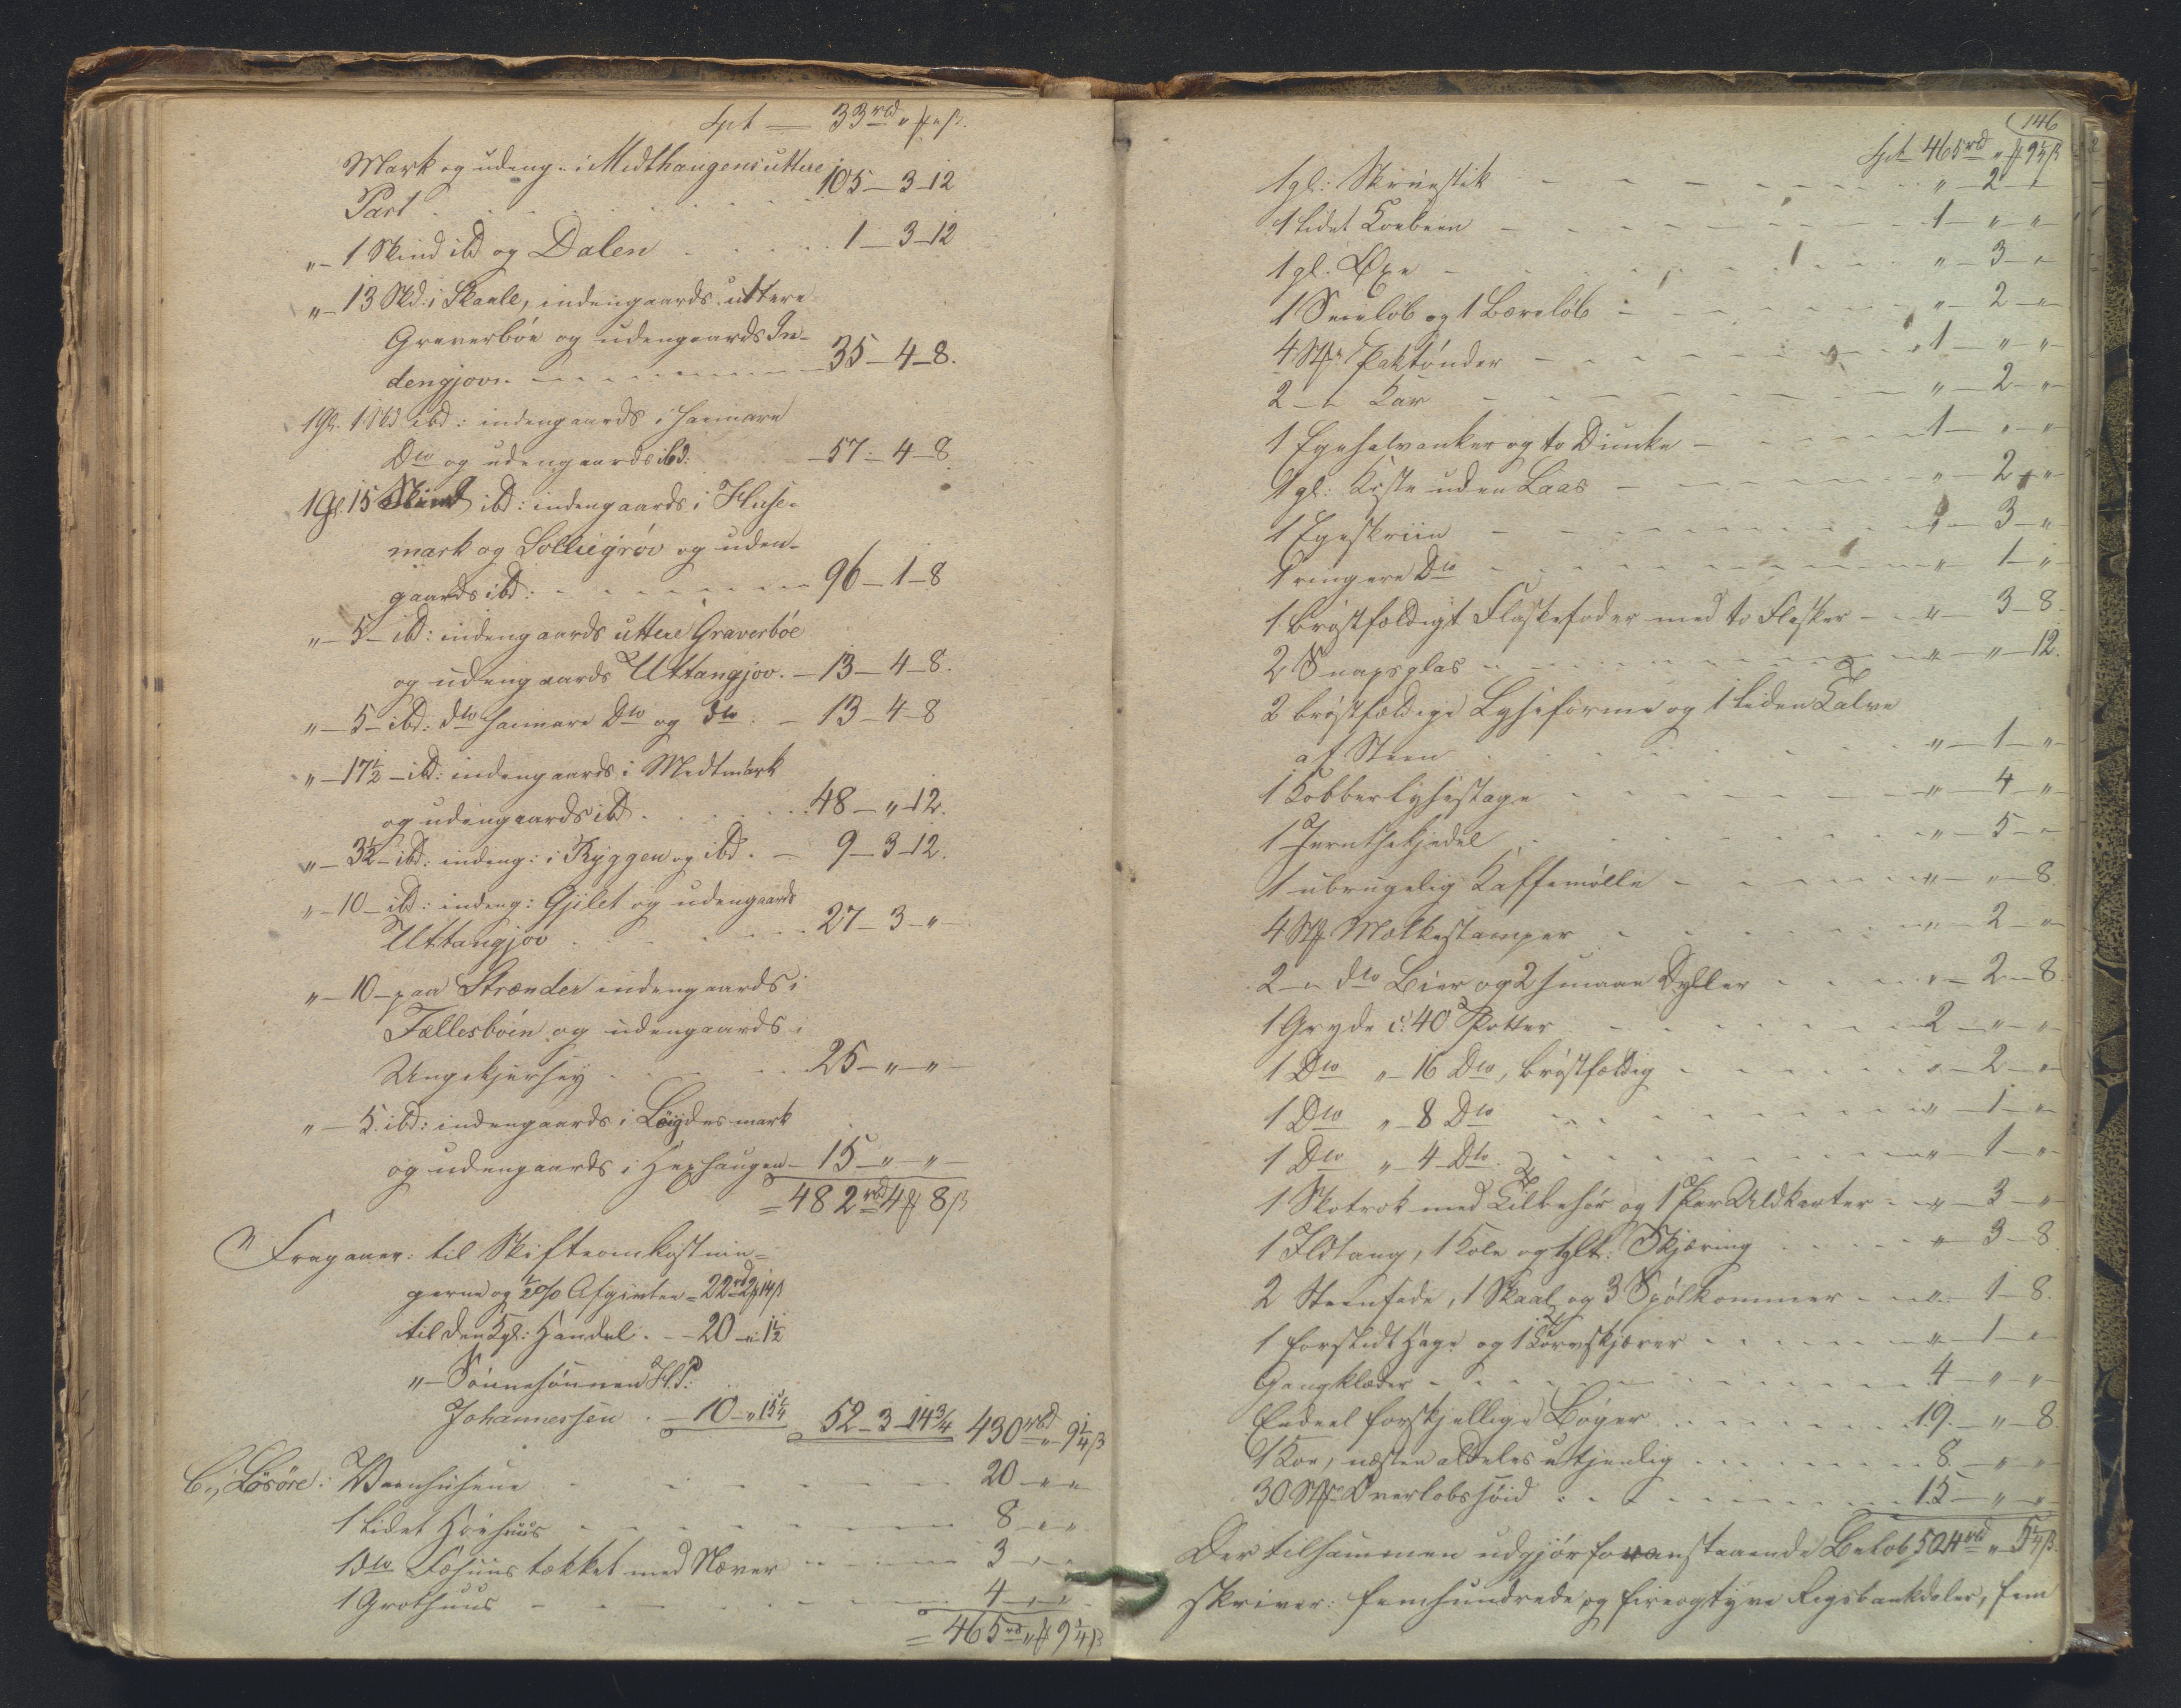 Lpt — 33rd „ ƒ „ β.
Mark og udeng. i Midthaugens uttere
Part . . . 105 — 3 — 12
„ — 1 Skind ibd og Dalen . . . 1 — 3 — 12
„ — 13 Skd: i Skaale, indengaards uttere
Graverböe og udengaards In-
dengjov. — 35 — 4 — 8.
1 Gl. 1 Skd ibd: indengaards i Hannare
Do og udengaards ibd: — 57 — 4 — 8
1 Gl. 15 Skind ibd: indengaards i Huse-
mark og Solliegröv og uden-
gaards ibd: — 96 — 1 — 8
„ — 5 — ibd: indengaards uttere Graverböe
og udengaards Uttangjov. — 13 — 4 — 8.
„ — 5 — ibd: do Hannare Do og do: — 13 — 4 — 8
„ — 17½ — ibd: indengaards i Medtmark
og udengaards ibd . . . 48 — „ — 12.
„ — 3½ — ibd: indeng: i Ryggen og ibd. — 9 — 3 — 12.
„ — 10 — ibd: indeng: Gjilet og udengaards
Uttangjov . . . 27 — 3 — „
„ — 10 — paa Strænder indengaards i
Fællesböin og udengaards i
. . . 25 — „ — „
„ — 5. ibd: indengaards i Löigdesmark
og udengaards i Hexhaugen — 15 — „ — „
= 482rbd 4 ƒ 8 β
Fragaaer: til Skifteomkostnin-
gerne og ½ % Afgivten = 22rd 2 ƒ 14 β
til den Kgl: Handel. — 20 — „ 1½
„ — Sönnesönnen H. P.
Johannessen. — 10 — „ 15¼ 52 — 3 — 14¾ 430rbd „ 9¼ β
C., Lösöre: Vaanhusene . . . 20 — „ „
1 lidet Höehuus . . . 8 — „ „
1 Do Fæhuus tækket med Næver — 3 — „ „
1 Grothuus — 4 — „ „
= 465rd „ ƒ 9¼ β
146
Lpt 465rd „ ƒ 9¼ β
1 gl: Skruestik — „ — 2 — „
1 lidet Koebeen — 1 — „ — „
1 gl. Öxe — „ — 3 — „
1 Seieløb og 1 Bæreløb — „ — 2 — „
4 Stkr Paktönder — 1 — „ — „
2 — „ Kar — „ — 2 — „
1 Egehalvanker og to Dunke — 1 — „ — „
1 gl: Kiste uden Laas — „ — 2 — „
1 Egeskriin — „ — 3 — „
1 ringere Do — „ — 1 — „
1 bröstfældigt Flaskefoder med to Flasker — „ — 3 — 8.
2 Snapsglas — „ — „ — 12.
2 bröstfældige Lyseforme og 1 liden Kalve
af Steen — „ — 1 — „
1 Kobberlysestage — „ — 4 — „
1 Jernthekjedel — „ — 5 — „
1 ubrugelig Kaffemölle — „ — „ — 8
4 Stkr Mælkestamper — „ — 2 — „
2 — „ do Bier og 2 smaae Dyller — „ — 2 — 8.
1 Gryde c: 40 Potter — 2 — „ — „
1 Do „ — 16 Do, bröstfældig — „ — 2 — „
1 Do „ — 8 Do — „ — 1 — „
1 Do „ — 4 Do. — „ — 1 — „
1 Skotrok med Tilbehör og 1 Par Uldkarter — „ — 3 — „
1 Ildtang, 1 Kole og gl: Skjæring — „ — 3 — 8
2 Steenfade, 1 Skaal og 3 Spölkommer — „ — 1 — 8.
1 forslidt Hage og 1 Törvskjærer — „ — 1 — „
Gangklæder — 4 — „ — „
Endeel forskjellige Böger — 19. — „ — 8
1 Koe, næsten aldeles utjenlig — 8 — „ — „
30 Stkr Overlobshöid — 15 — „ — „
Der tilsammen udgjör foranstaaende Belöb 524rd „ 5¼ β.
skriver: femhundrede og fireogtyve Rigsbankdaler, fem